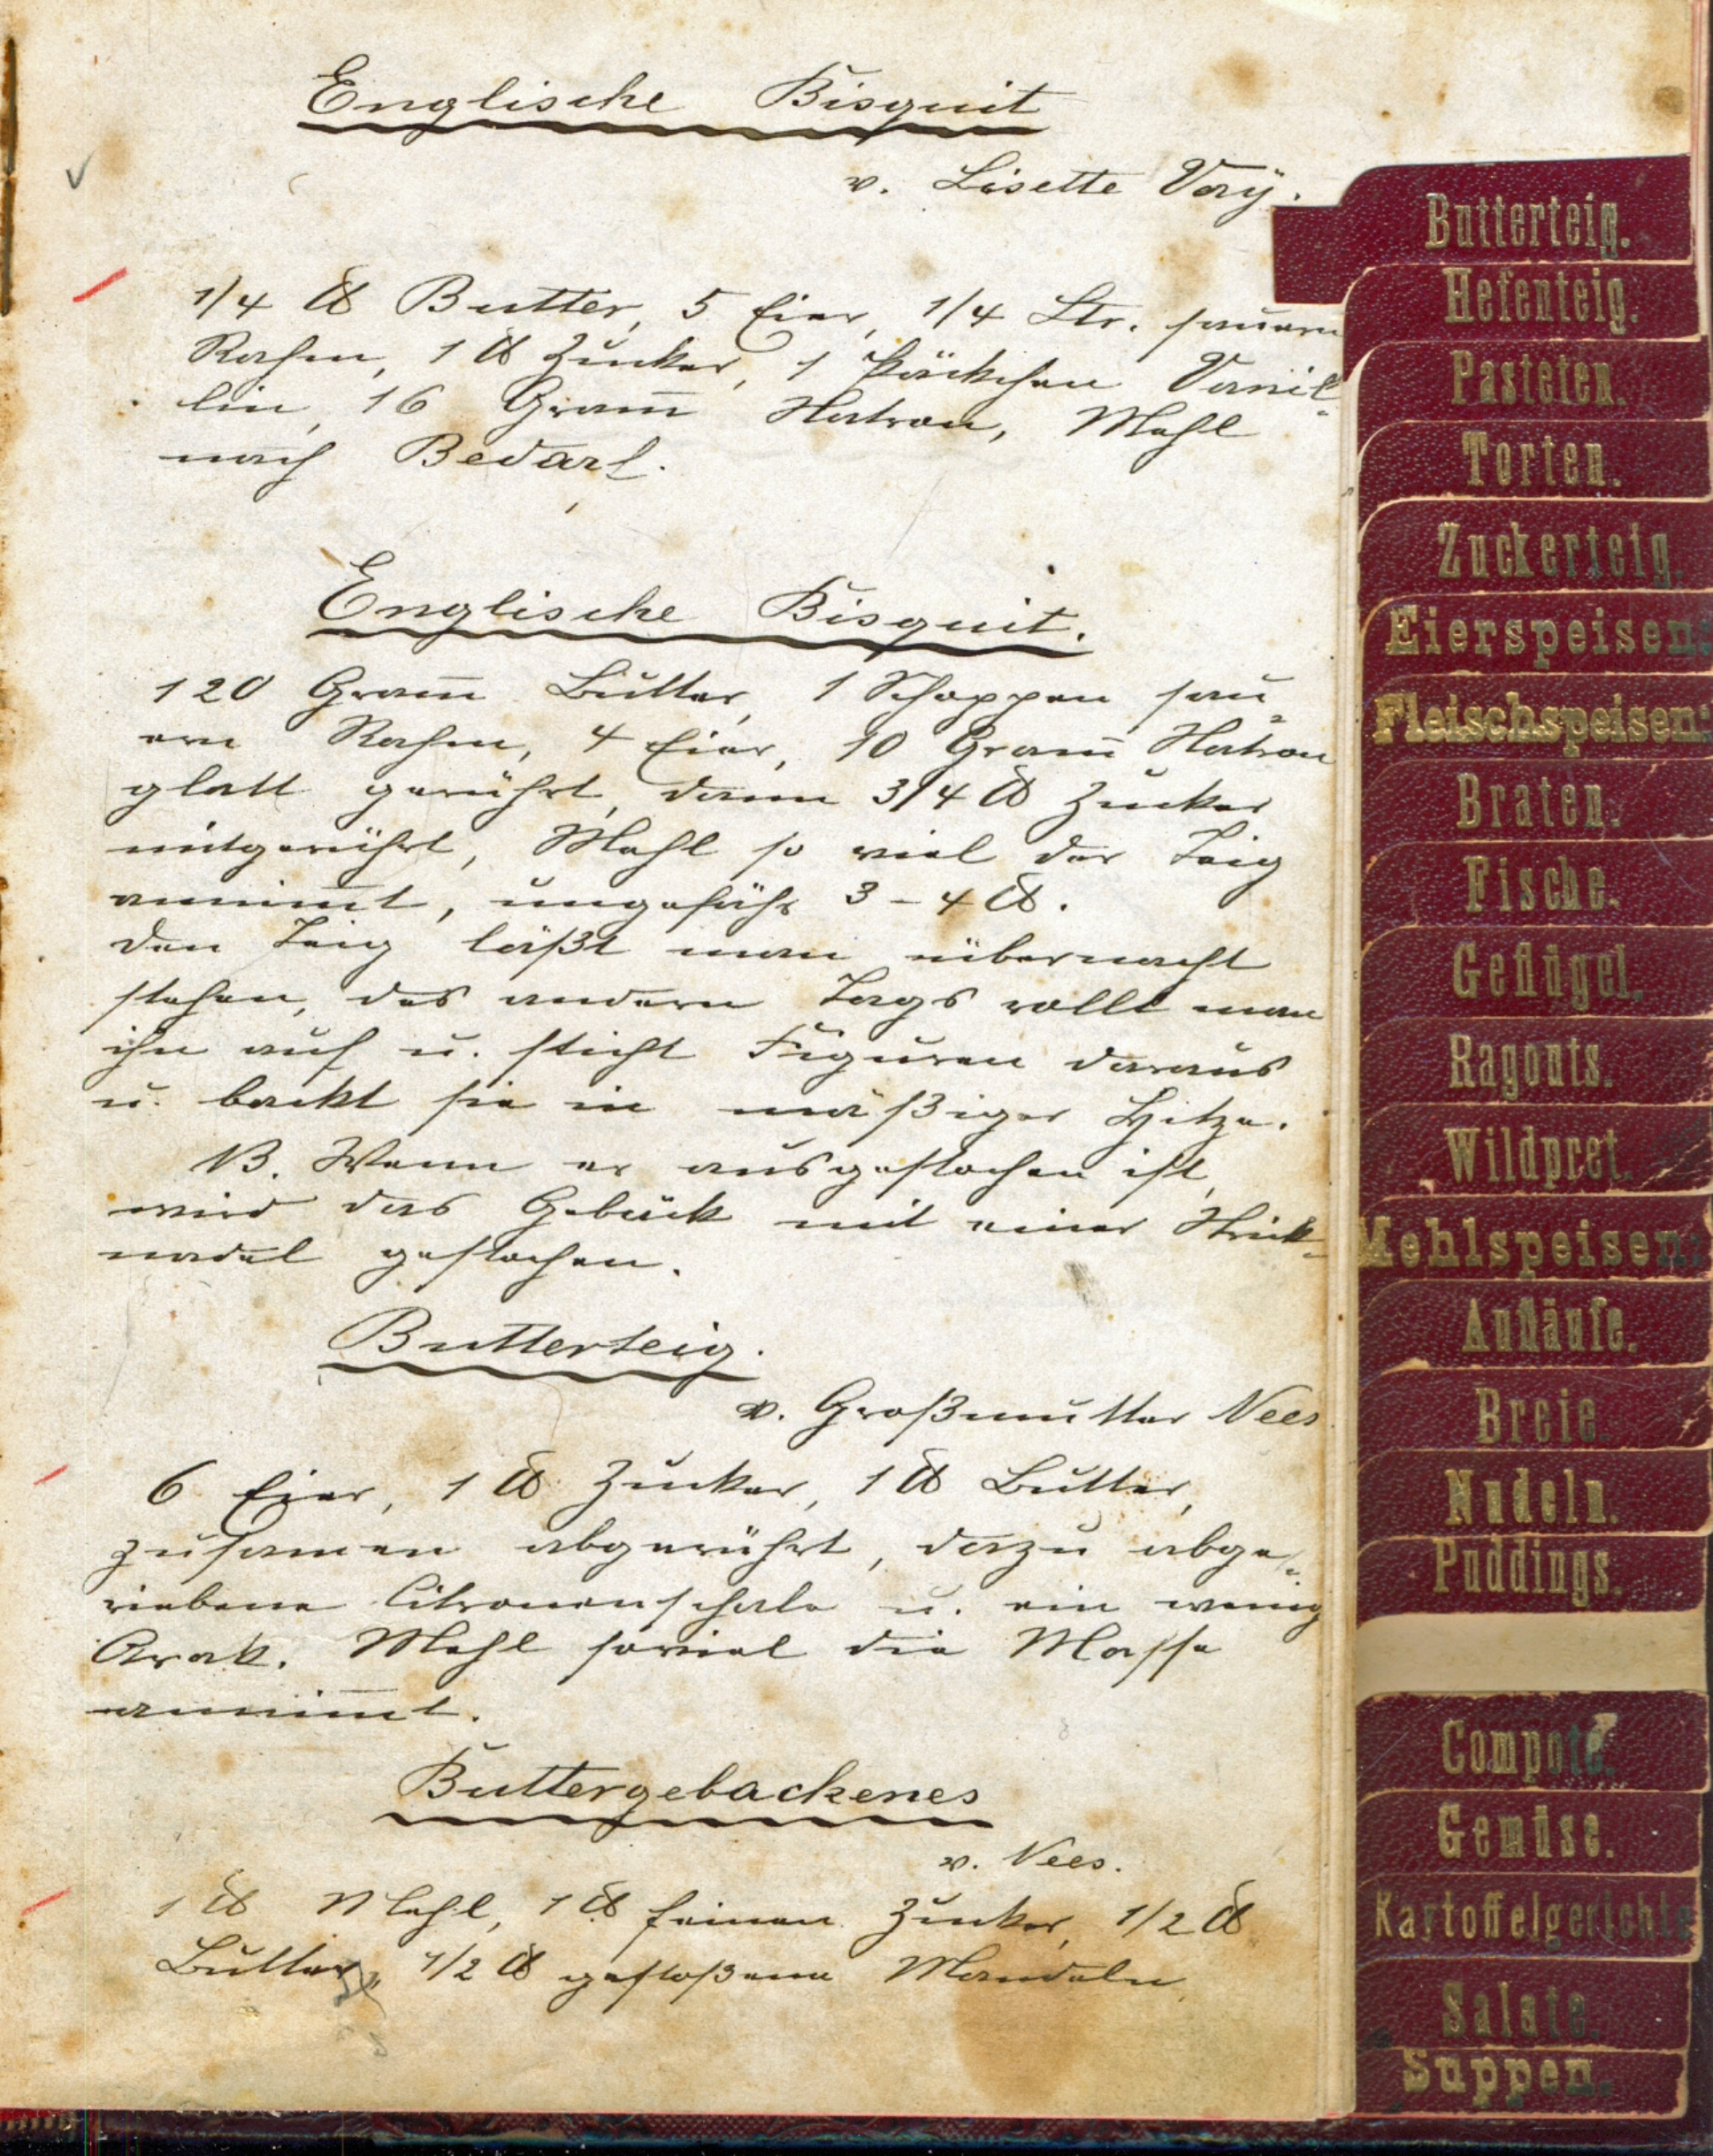 Englische Bisquit
v. Lisette Vorÿ.
1/4 ℔ Butter, 5 Eier, 1/4 Ltr. sauern
Rahm, 1 ℔ Zucker, 1 Päckchen Vanil-
lin, 16 Gram̅ Natron, Mehl
nach Bedarf.
Englische Bisquit.
120 Gram̅ Butter, 1 Schoppen sau-
ern Rahm, 4 Eier, 10 Gram̅ Natron
glatt gerührt, dann 3/4 ℔ Zucker
mitgerührt, Mehl so viel der Teig
annim̅t, ungefähr 3 - 4 ℔.
den Teig läßt man übernacht
stehen, des andern Tags rollt man
ihn auf u. sticht Figuren daraus
u. backt sie in mäßiger Hitze.
NB. Wenn er ausgestochen ist,
wird das Gebäck mit einer Strick-
nadel gestochen.
Butterteig.
v. Großmutter Nees
6 Eier, 1 ℔ Zucker, 1 ℔ Butter,
zusamen abgerührt, dazu abge-
riebene Citronenschale u. ein wenig
Arak. Mehl soviel die Masse
annim̅t.
Buttergebackenes
v. Nees.
1 ℔ Mehl, 1 ℔ feinen Zucker, 1/2 ℔
Butter, 1/2 ℔ gestoßene Mandeln,
Butterteig.
Hefenteig.
Pasteten.
Torten.
Zuckerteig.
Eierspeisen:
Fleischspeisen:
Braten.
Fische.
Geflügel.
Ragouts.
Wildpret.
Mehlspeisen:
Aufläufe.
Breie.
Nudeln.
Puddings.
Compote.
Gemüse.
Kartoffelgerichte
Salate.
Suppen.